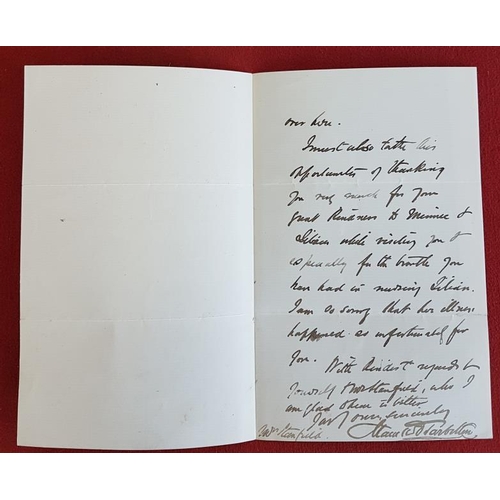 over here.
I must also take this
opportunity of thanking
you very much for your
great kindness to Minnie &
Lilian while visiting you &
especially for the trouble you
have had in nursing Lilian.
I am so sorry that her illness
happened so unfortunately for
you.
With kindest regards to
yourself & Mr Stanfield, who I
am glad to hear is better
I am yours sincerely
Mrs Stanfield.